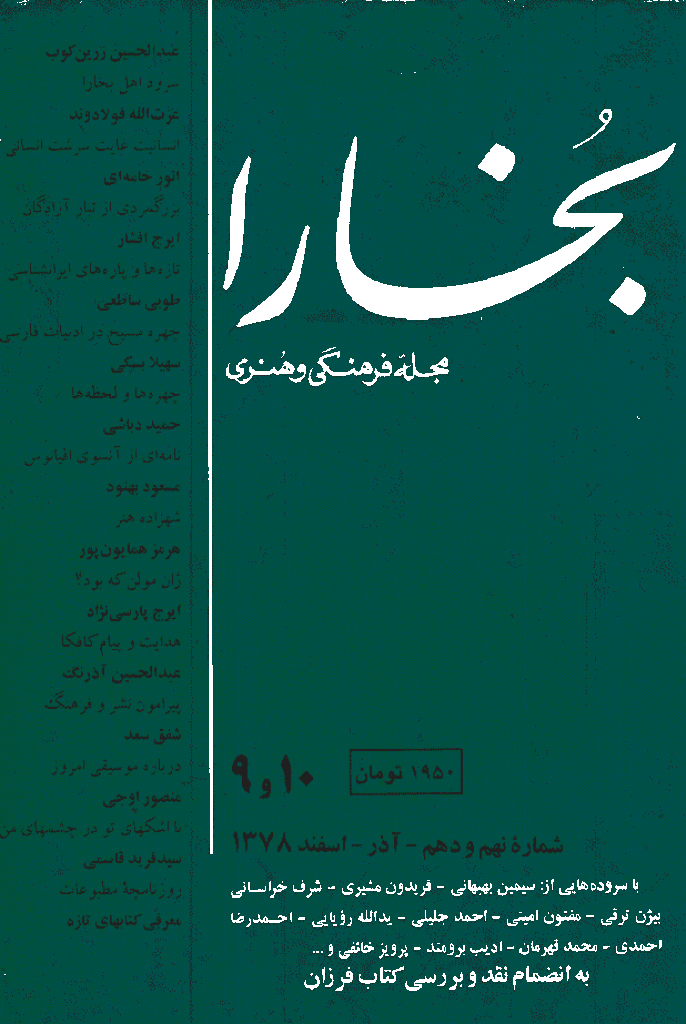 بُخارا
مجلهٔ فرهنگی و هنری
عبدالحسین زرین‌کوب
سرود اهل بخارا
عزت‌الله فولادوند
انسانیت غایت سرشت انسانی
انور خامه‌ای
بزرگمردی از تبار آزادگان
ایرج افشار
تازه‌ها و پاره‌های ایرانشناسی
طوبی ساطعی
چهره مسیح در ادبیات فارسی
سهیلا بسکی
چهره‌ها و لحظه‌ها
حمید دباشی
نامه‌ای از آنسوی اقیانوس
مسعود بهنود
شهزاده هنر
هرمز همایون‌پور
ژان مولن که بود؟
ایرج پارسی‌نژاد
هدایت و پیام کافکا
عبدالحسین آذرنگ
پیرامون نشر و فرهنگ
شفق سعد
درباره موسیقی امروز
منصور اوجی
با اشکهای تو در چشمهای من
سیدفرید قاسمی
روزنامچهٔ مطبوعات
معرفی کتابهای تازه
۹ و ۱۰
۱۹۵۰ تومان
شمارهٔ نهم و دهم - آذر - اسفند ۱۳۷۸
با سروده‌هایی از: سیمین بهبهانی - فریدون مشیری - شرف خراسانی
بیژن ترقی - مفتون امینی - احمد جلیلی - یدالله رؤیایی - احمدرضا
احمدی - محمد قهرمان - ادیب برومند - پرویز خائفی و ...
به انضمام نقد و بررسی کتاب فرزان